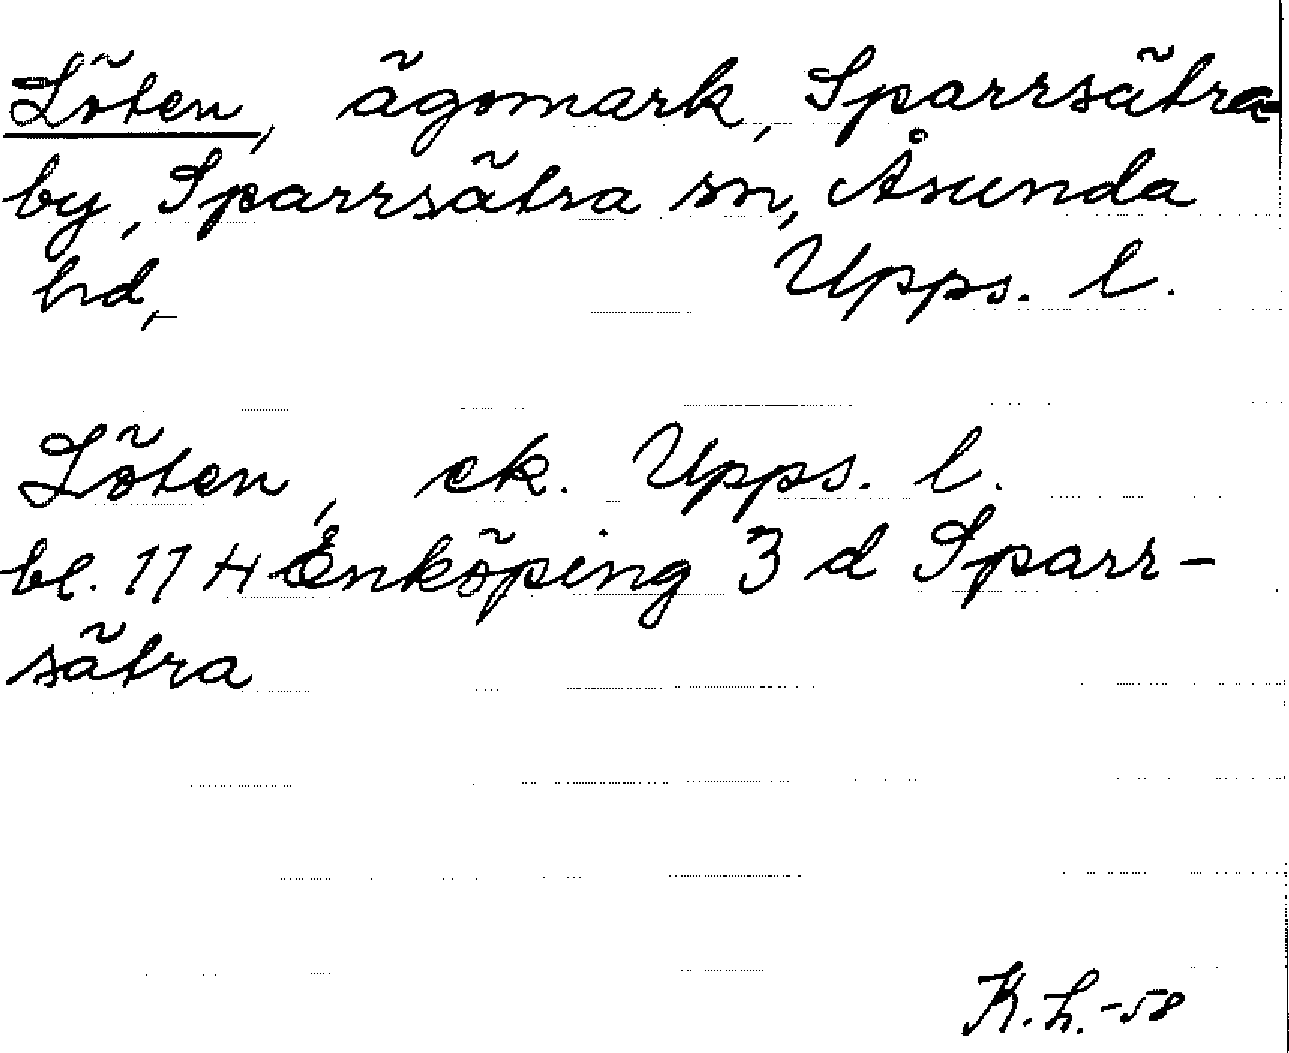 Löten, ägomark, Sparrsätra
by, Sparrsätra sn, Åsunda
hd, Upps. l.
Löten, ek. Upps. l.
bl. 11 H Enköping 3 d Sparr-
sätra
K.h.-58